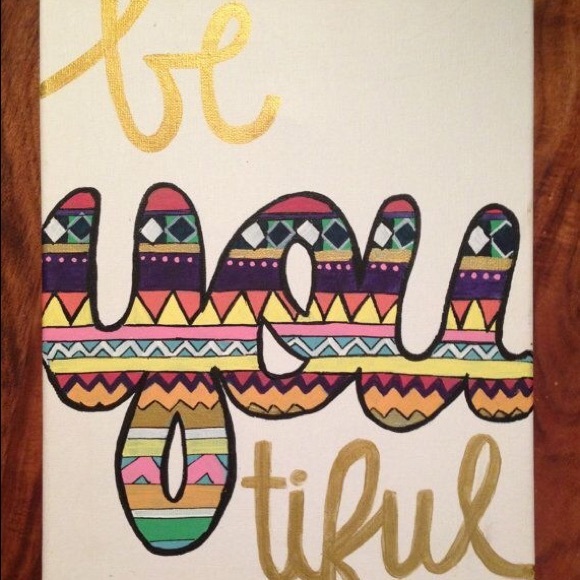 be
you
tiful